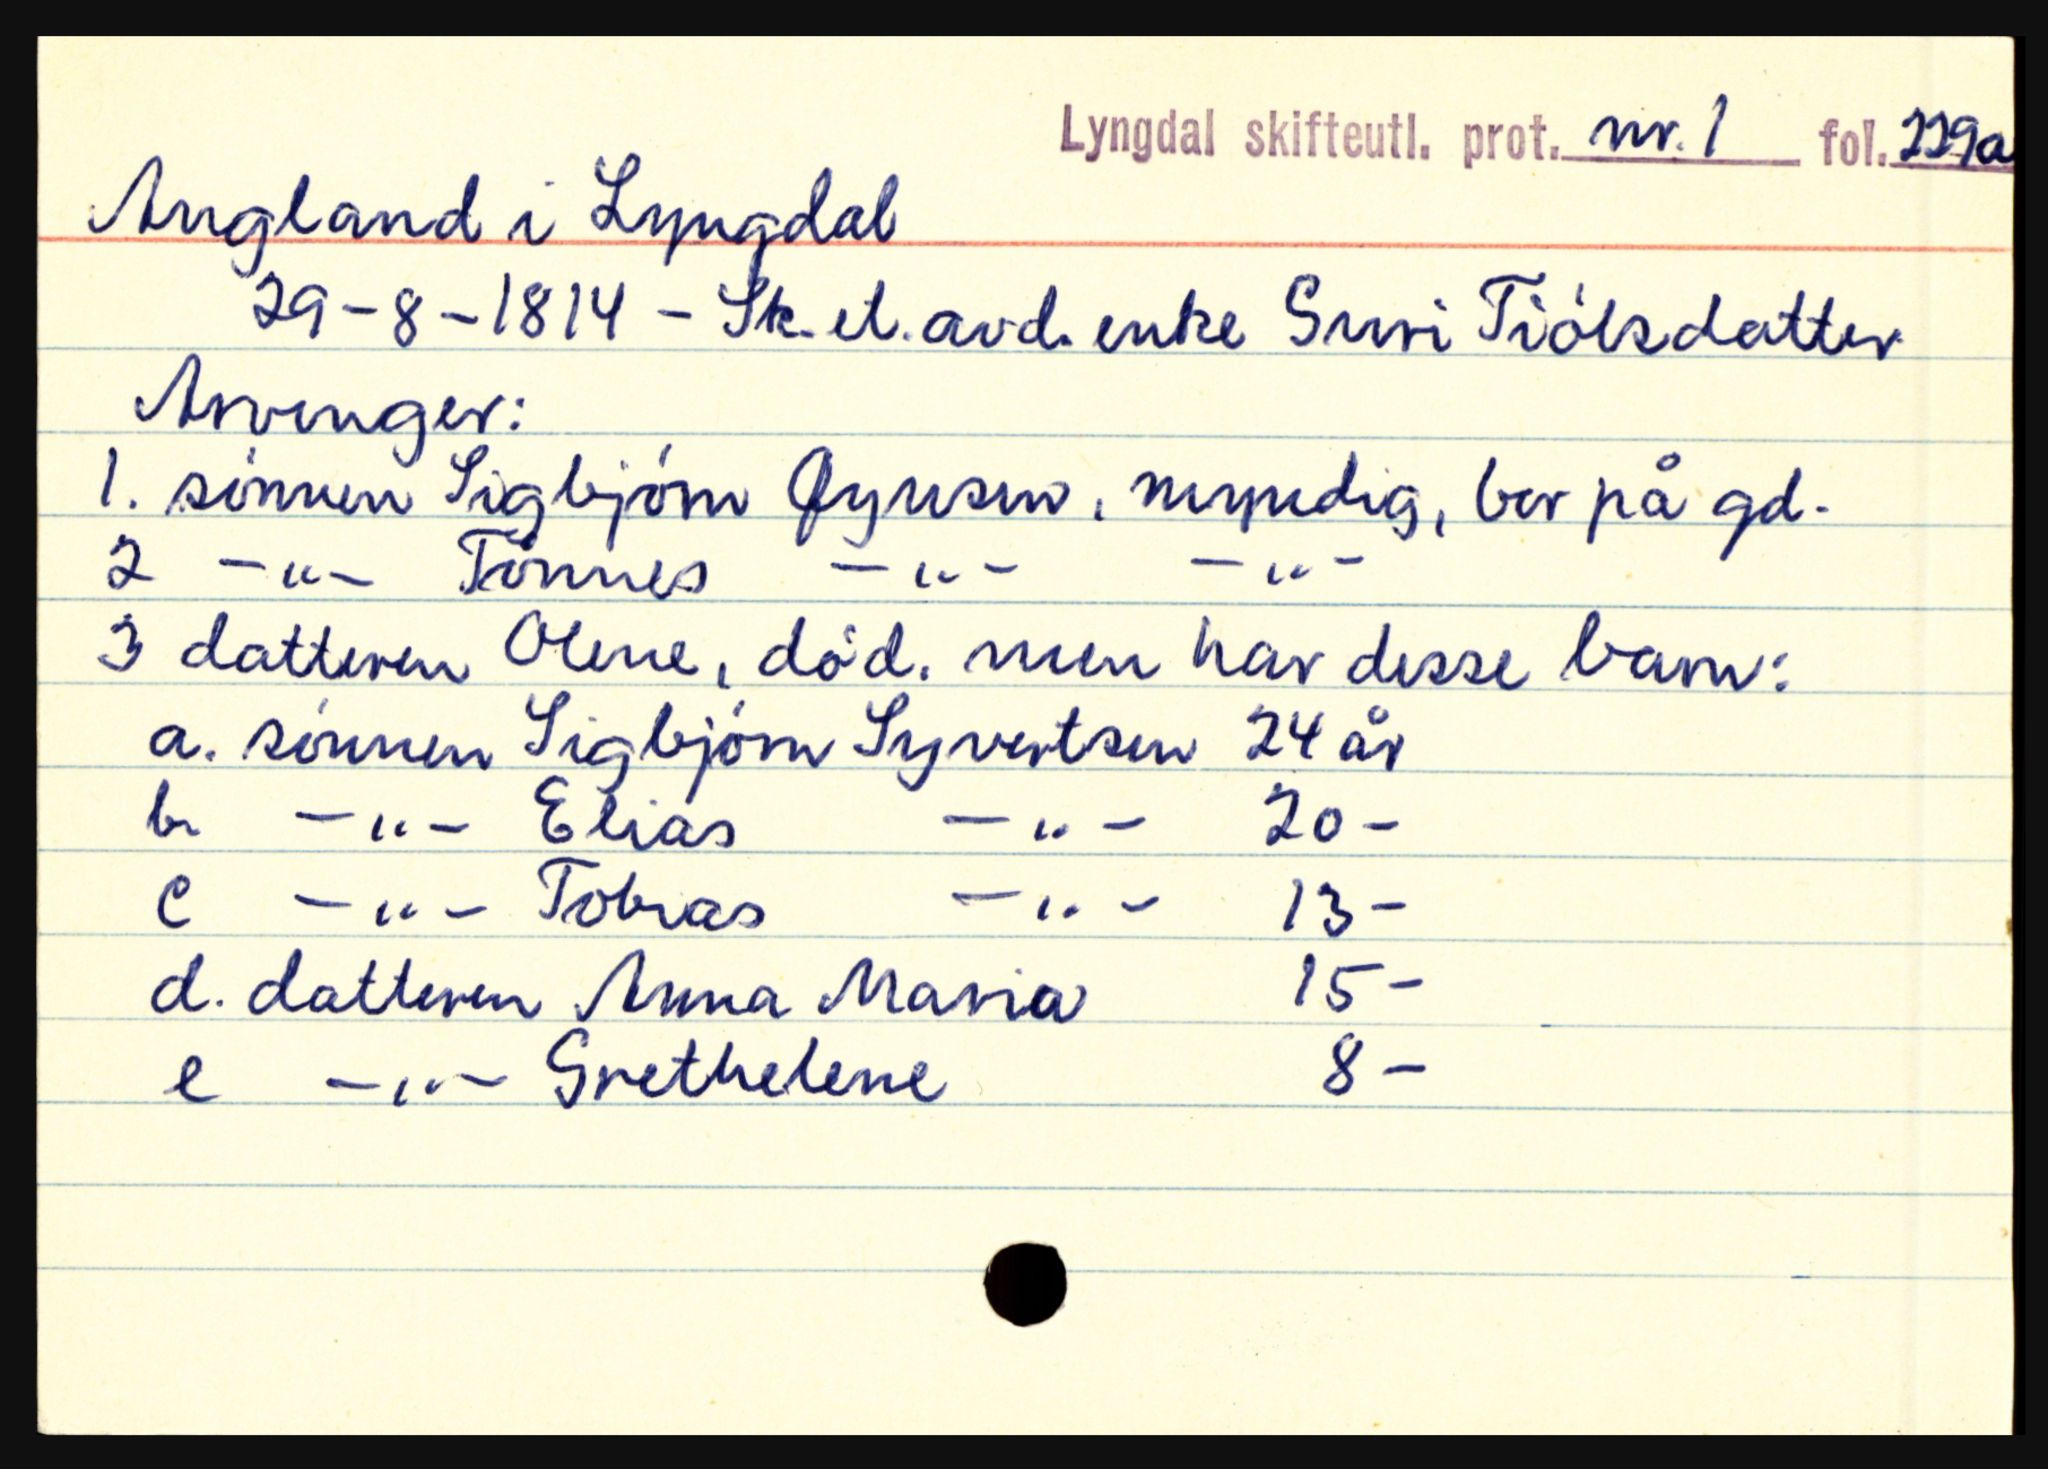 Lyngdal skifteutl. prot. nr. 1 fol. 229a
Augland i Lyngdal
29-8-1814 - Sk. et. avd. enke Guri Tiólsdatter
Arvinger:
1. sónnen Sigbjórn Øynsen, myndig, bor på gd.
2 -"- Tónnes -"- -"-
3 datteren Olene, dód. men har disse barn:
a. sónnen Sigbjórn Syvertsen 24 år
b. -"- Elias -"- 20-
c -"- Tobias -"- 13-
d. datteren Anna Maria 15-
e -"- Grethelene 8-